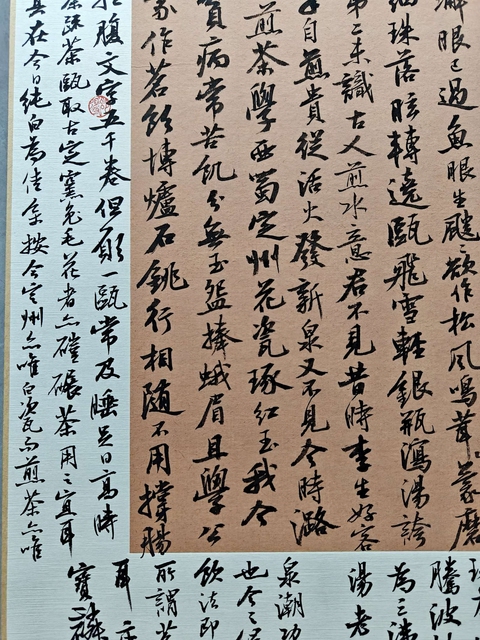 眼已過魚眼生颼颼欲作松風鳴茸蒙磨
細珠落眩轉遶甌飛雪輕銀瓶瀉湯誇
第二未識古人煎水意君不見昔時李生好客
手自煎貴從活火發新泉又不見今時潞
煎茶學西蜀定州花瓷琢紅玉我今
貧病常苦飢分無玉盌捧蛾眉且學公
家作茗飲博爐石銚行相隨不用撐腸
拄腹文字五千卷但願一甌常及睡足日高時
茶甌取古定窯兔毛花者亦磑碾茶用之宜耳
其在今日純白為佳余按今定州亦唯白瓷而煎茶亦唯
騰波
為三沸
湯老
泉潮功
也今之
飲法即
所謂
耳
寶